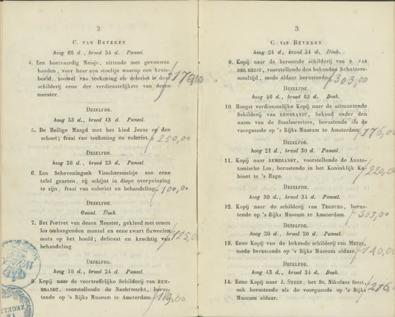 2
C. VAN BEVEREN
hoog 66 d., breed 54 d. Paneel.
4. Een hoofdaardig Meisje, zittende met gevouwen
handen, voor haar een stoeltje waarop een
beeld, zoowel van teekening als coloriet is deze
schilderij eene der verdienstelijkste van dezen
meester.
DEZELFDE.
hoog 53 d., breed 43 d. Paneel.
5. De Heilige Maagd met het kind Jezus op den
schoot; fraai van teekening en coloriet. 250,00
DEZELFDE.
hoog 26 d., breed 23 d. Paneel.
6. Een Scheveningsch Vischersmeisje aan eene
tafel gezeten, zij schijnt in diepe overpeinzing
te zijn, fraai van coloriet en behandeling. 100,00
DEZELFDE.
Ovaal. Doek
7. Het Portret van dezen Meester, gekleed met eenen
los omhangenden mantel en eene zwart fluweelen
muts op het hoofd; delicaat en krachtig van
behandeling
DEZELFDE.
hoog 18 d., breed 24 d. Paneel.
8. Kopij naar de voortreffelijke Schilderij van REM-
BRANDT, voorstellende de Nachtwacht, berus-
tende op 's Rijks Museum te Amsterdam.
3
C. VAN BEVEREN.
hoog 24 d., breed 54 d. Doek.
9. Kopij naar de beroemde schilderij van B. VAN
DER HELST, voorstellende den bekenden Schutters-
maaltijd, mede aldaar berustende. 303,00
DEZELFDE.
hoog 46 d., breed 65 d. Doek.
10. Hoogst verdienstelijke Kopij naar de uitmuntende
Schilderij van REMBRANDT, bekend onder den
naam van de Staalmeesters, berustende als de
voorgaande op 's Rijks Museum te Amsterdam. 176,00
DEZELFDE.
hoog 21 d., breed 30 d. Paneel.
11. Kopij naar REMBRANDT, voorstellende de Anato-
mische Les, berustende in het Koninklijk Ka-
binet te 's Hage.
DEZELFDE.
12. Kopij naar de schilderij van TERBURG, berus-
tende op 's Rijks Museum te Amsterdam.
DEZELFDE.
hoog 26 d., breed 20 d. Paneel.
13. Eene Kopij van de bekende schilderij van METZU,
mede berustende op 's Rijks Museum te Am-
sterdam. 140,00
DEZELFDE.
hoog 43 d., breed 34 d. Doek.
14. Eene Kopij naar J. STEEN, het St. Nikolaas feest,
ook berustende als de voorgaande op 's Rijks
Museum aldaar.